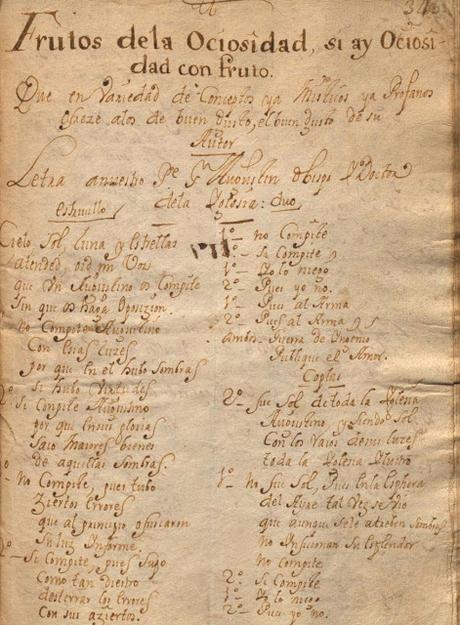 Frutos dela Ociosidad, si ay Ociosi-
dad con fruto.
Que en Variedad de Conceptos ya Misticos ya Profanos
ofreze alos de buen Gusto, el buen Gusto de su
Autor
Letra anuestro Pe Sn Augustin obispo y Doctor
dela Yglesia: duo
estrivillo
Cielo Sol, luna, y estrellas
atended, oid mi Voz
que Augustino os Compite
sin que os haga Oposizion.
No Compite Augustino
Con esas luzes
por que en el hubo sombras
2º si hubo Virtudes
Si Compite Augustino
por que en sus glorias
saco Maiores bienes
de aquellas sombras.
No Compite, pues tubo
Ziertos Errores
que al principio ofuscaron
Su luz Informe.
Si Compite, pues supo
Como tan Diestro
desterrar los Errores
Con sus aziertos.
1º no Compite
2º Si Compite
1º Yo lo niego
2º Pues yo no.
1º Pues al Arma
2º Pues al Arma
ambos. Guerra de Ingenio
Publique el Amor.
Coplas
2º fue Sol de toda la Yglesia
Augustino, y siendo Sol
Con los raios de sus luzes
toda la Yglesia Ylustro
1º No fue Sol, Pues en la Esphera
del Ayre tal Vez se vio
que aunque se le atreben Sombras
No Ofuscan su esplendor
No Compite
2º Si Compite
1º Yo lo niego
2º Pues yo no.